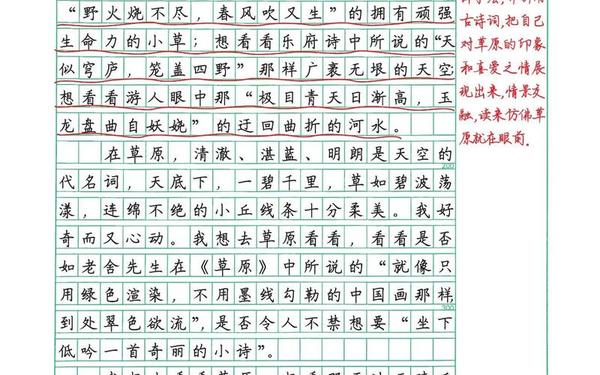 “野火烧不尽，春风吹又生”的拥有顽强
生命力的小草；想看看乐府诗中所说的“天
似穹庐，笼盖四野”那样广袤无垠的天空；
想看看游人眼中那“极目青天日渐高，玉
龙盘曲自妖娆”的迂回曲折的河水。
在草原，清澈、湛蓝、明朗是天空的
200
代名词，天底下，一碧千里，草如碧波荡
漾，连绵不绝的小丘线条十分柔美。我好
奇而又心动。我想去草原看看，看看是否
如老舍先生在《草原》中所说的“就像只
用绿色渲染，不用墨线勾勒的中国画那样，
300
到处翠色欲流”，是否令人不禁想要“坐下
低吟一首奇丽的小诗”。
古诗词，把自己
对草原的印象
和喜爱之情展
现出来，情景交
融，读来仿佛草
原就在眼前。